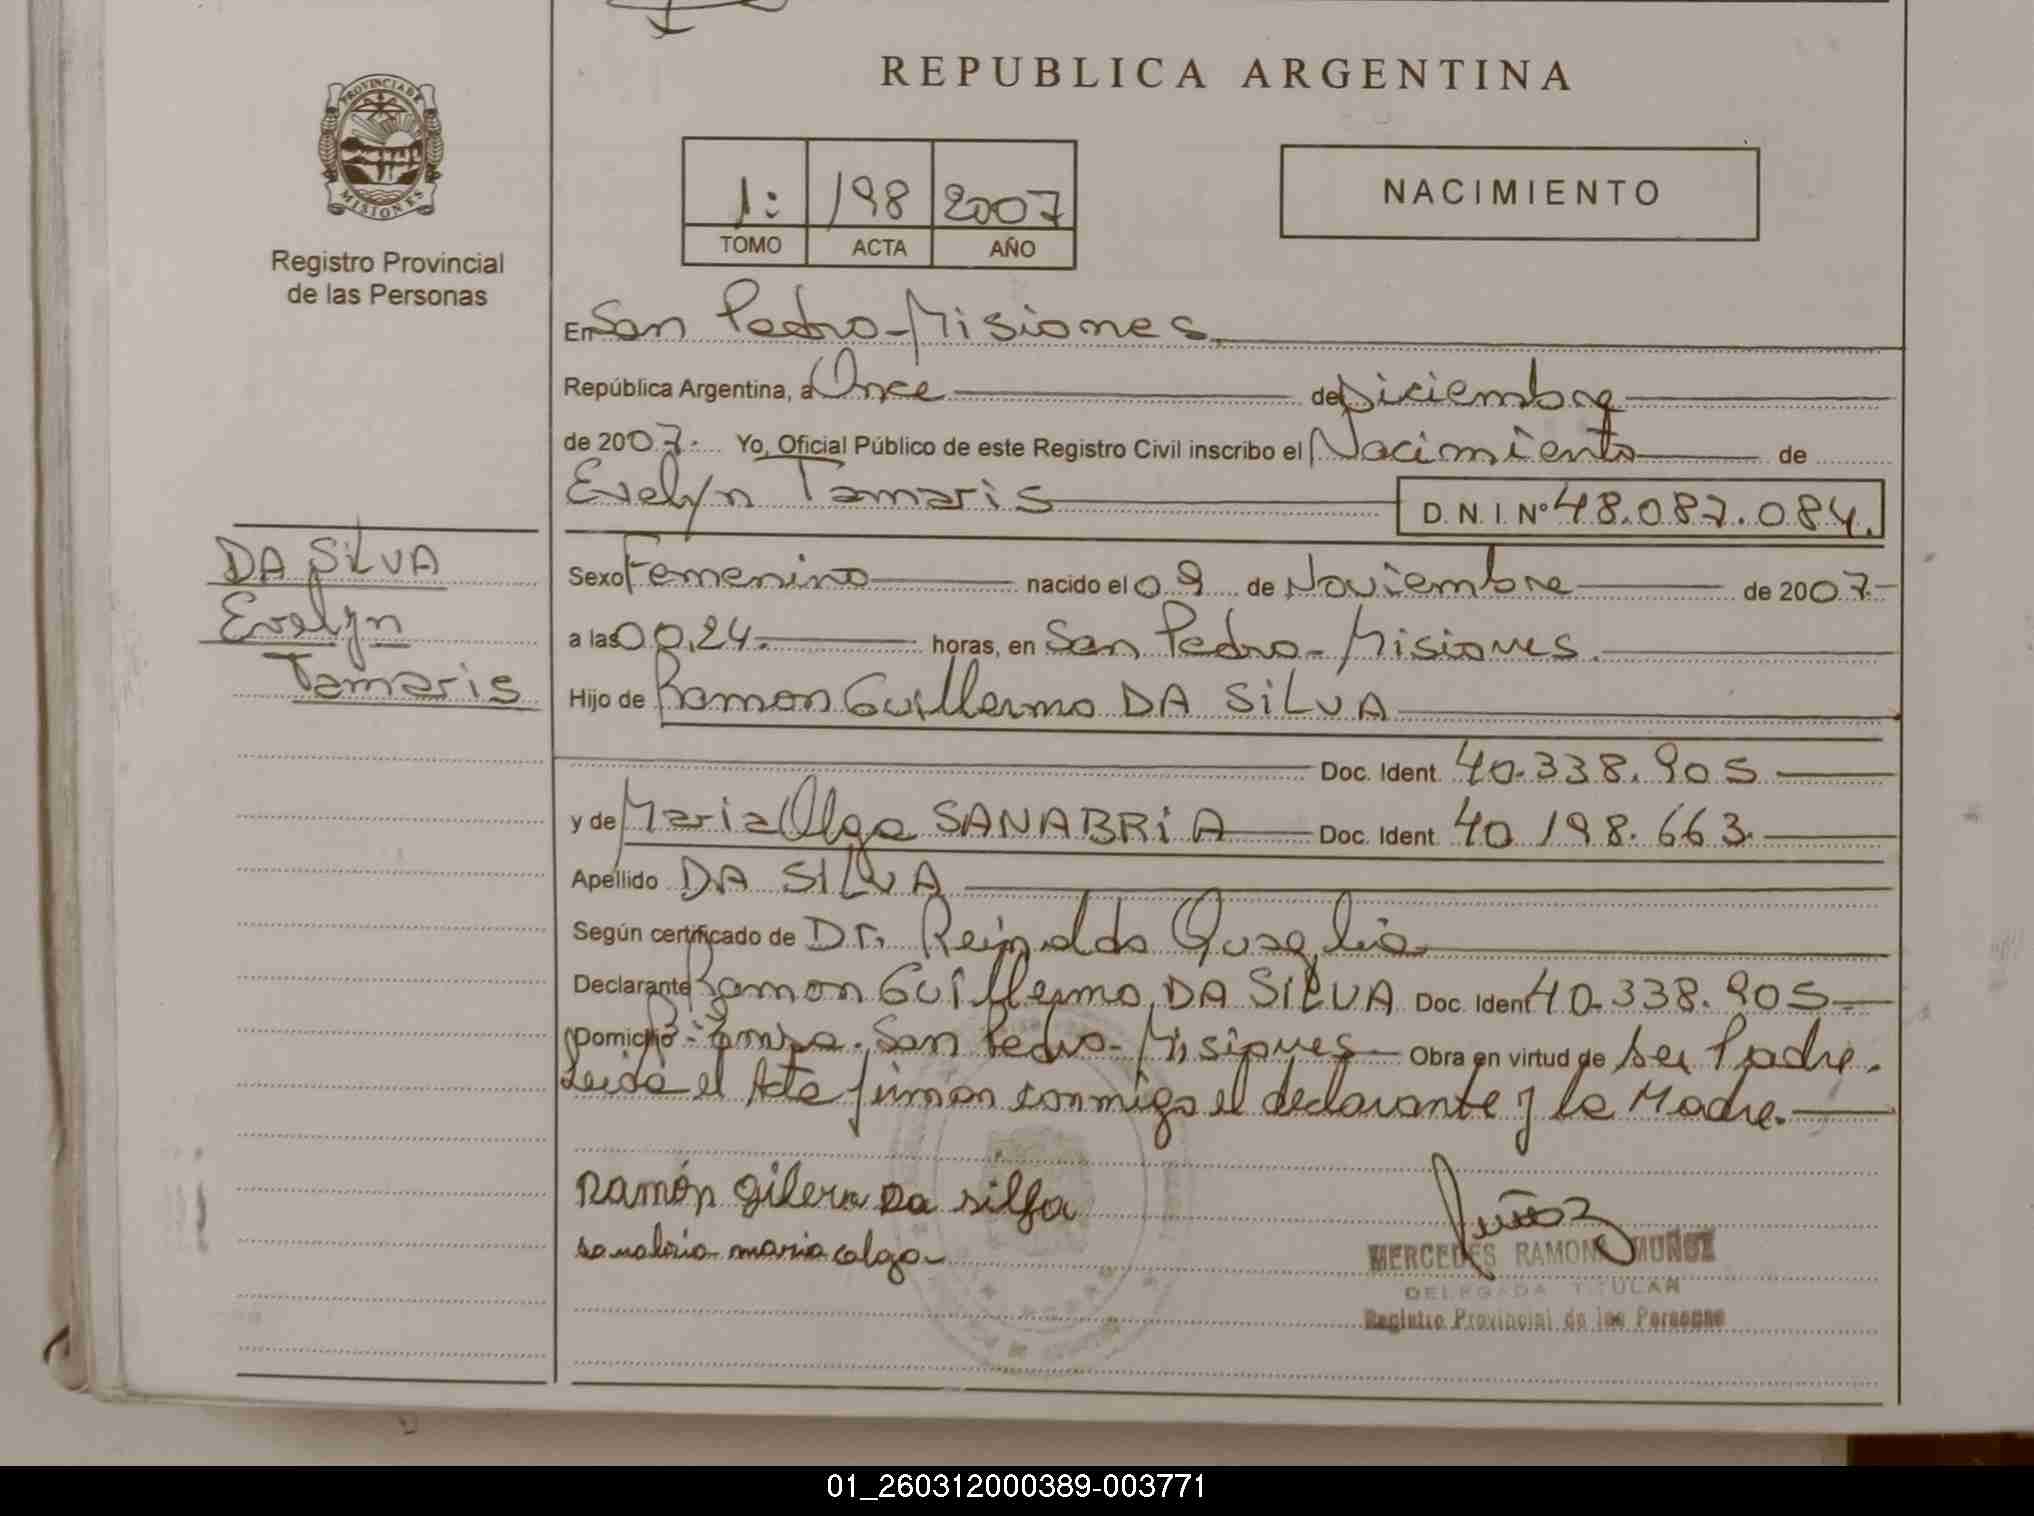 REPUBLICA ARGENTINA
PROVINCIA DE MISIONES
Registro Provincial
de las Personas
1: 198 2007
TOMO ACTA AÑO
NACIMIENTO
En San Pedro-Misiones.
República Argentina, a Once de Diciembre
de 2007. Yo, Oficial Público de este Registro Civil inscribo el Nacimiento de
Evelyn Tamaris D.N.I. Nº 48.087.084.
DA SILVA
Evelyn
Tamaris
Sexo Femenino nacido el 09 de Noviembre de 2007.-
a las 00,24. horas, en San Pedro-Misiones.
Hijo de Ramon Guillermo DA SILVA
Doc. Ident. 40.338.905
y de Maria Olga SANABRIA Doc. Ident. 40.198.663.
Apellido DA SILVA
Según certificado de Dr. Reinaldo Quaglia
Declarante Ramon Guillermo DA SILVA Doc. Ident 40.338.905
Domicilio San Pedro-Misiones Obra en virtud de ser Padre.
Leida el Acta firman conmigo el declarante y la Madre.
Ramón gilera Da silfa
maria olga
Muñoz
MERCEDES RAMONA MUÑOZ
DELEGADA TITULAR
Registro Provincial de las Personas
01_260312000389-003771